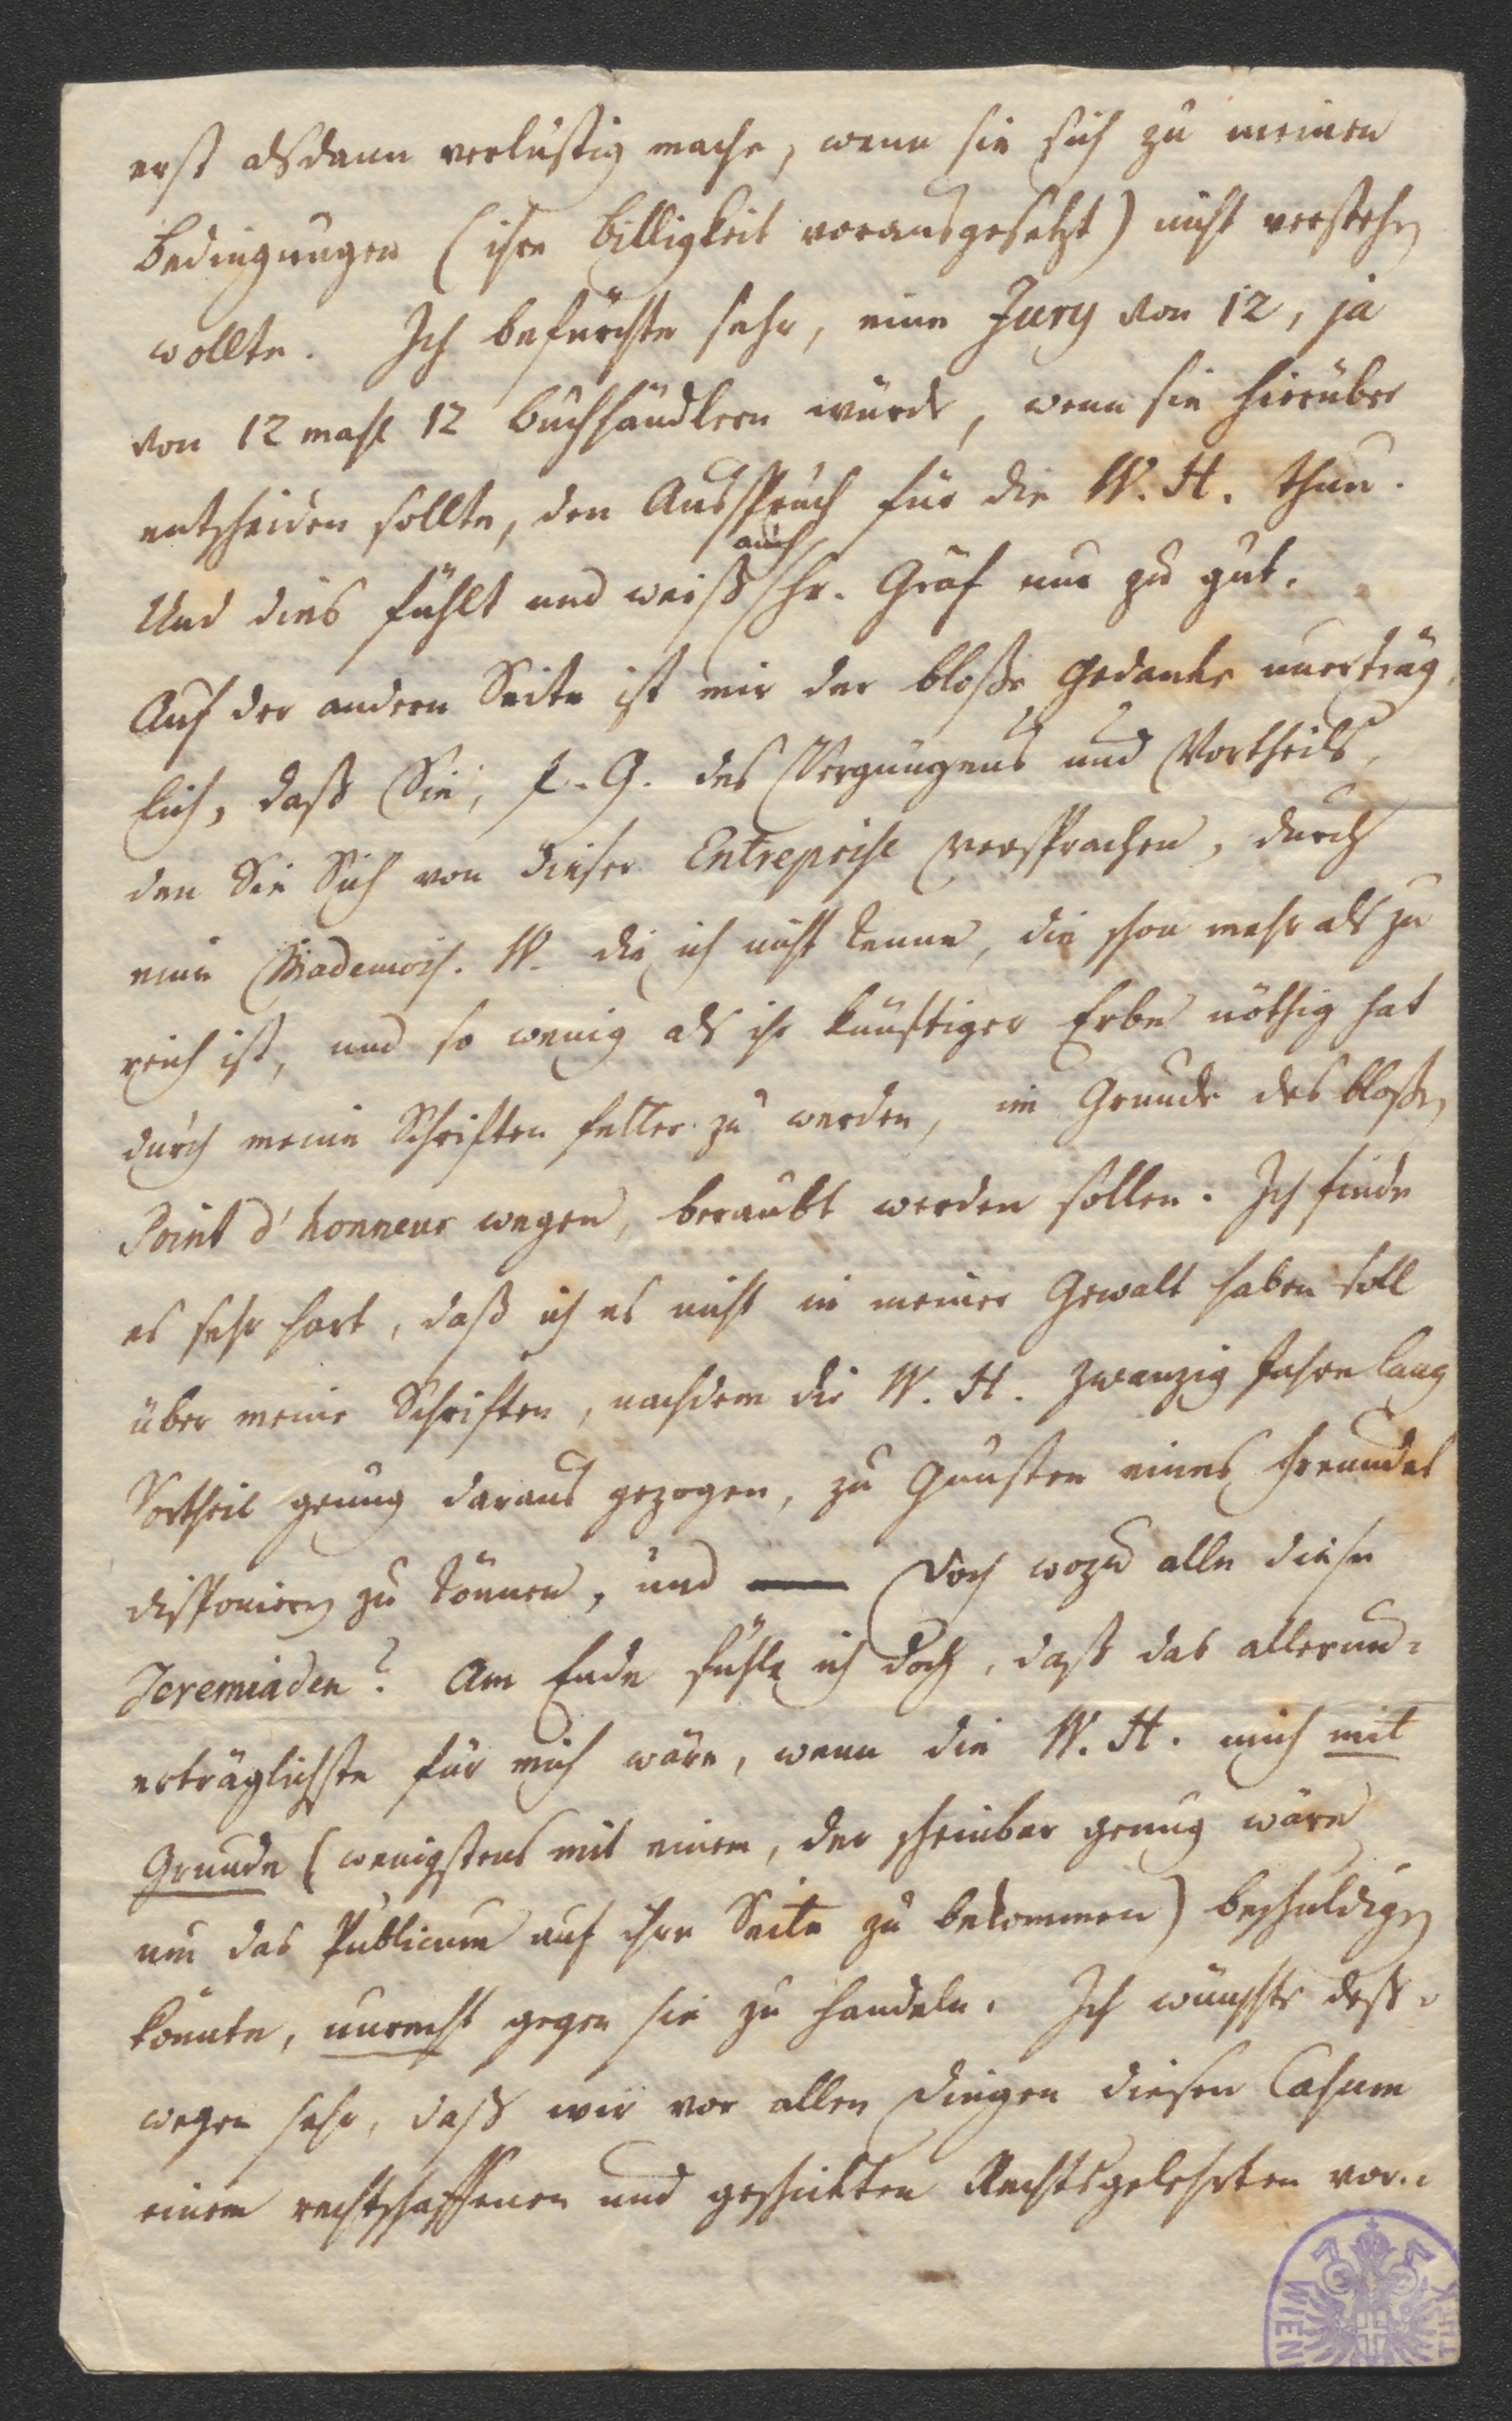 erst alsdann verlustig mache, wenn sie sich zu meinen
Bedingungen (ihre Billigkeit vorausgesetzt) nicht verstehen
wollte. Ich befürchte sehr, eine Jury von 12, ja
von 12 mahl 12 Buchhändlern würde, wenn sie hierüber
entscheiden sollte, den Ausspruch für die W. H. thun.
auch
Und dies fühlt und weiß Hr. Gräf nur zu gut.
Auf der andern Seite ist mir der bloße Gedanke unerträg
lich, daß Sie, l. G. des Vergnügens und Vortheils,
den Sie Sich von dieser Entreprise versprachen, durch
eine Mademois. W. die ich nicht kenne, die schon mehr als zu
reich ist, und so wenig als ihr künftiger Erbe nöthig hat
durch meine Schriften fetter zu werden, im Grunde des bloßen
Point d'honneur wegen, beraubt werden sollen. Ich finde
es sehr hart, daß ich es nicht in meiner Gewalt haben soll
über meine Schriften, nachdem die W. H. zwanzig Jahre lang
Vortheil genug daraus gezogen, zu Gunsten eines Freundes
disponieren zu können, und — Doch wozu alle diese
Jeremiaden? Am Ende fühle ich doch, daß das allerun-
erträglichste für mich wäre, wenn die W. H. mich mit
Grunde (wenigstens mit einem, der scheinbar genug wäre
um das Publicum auf ihre Seite zu bekommen) beschuldigen
könnte, unrecht gegen sie zu handeln. Ich wünschte deß-
wegen sehr, daß wir vor allen Dingen diesen Casum
einem rechtschaffenen und geschickten Rechtsgelehrten vor-
WIEN